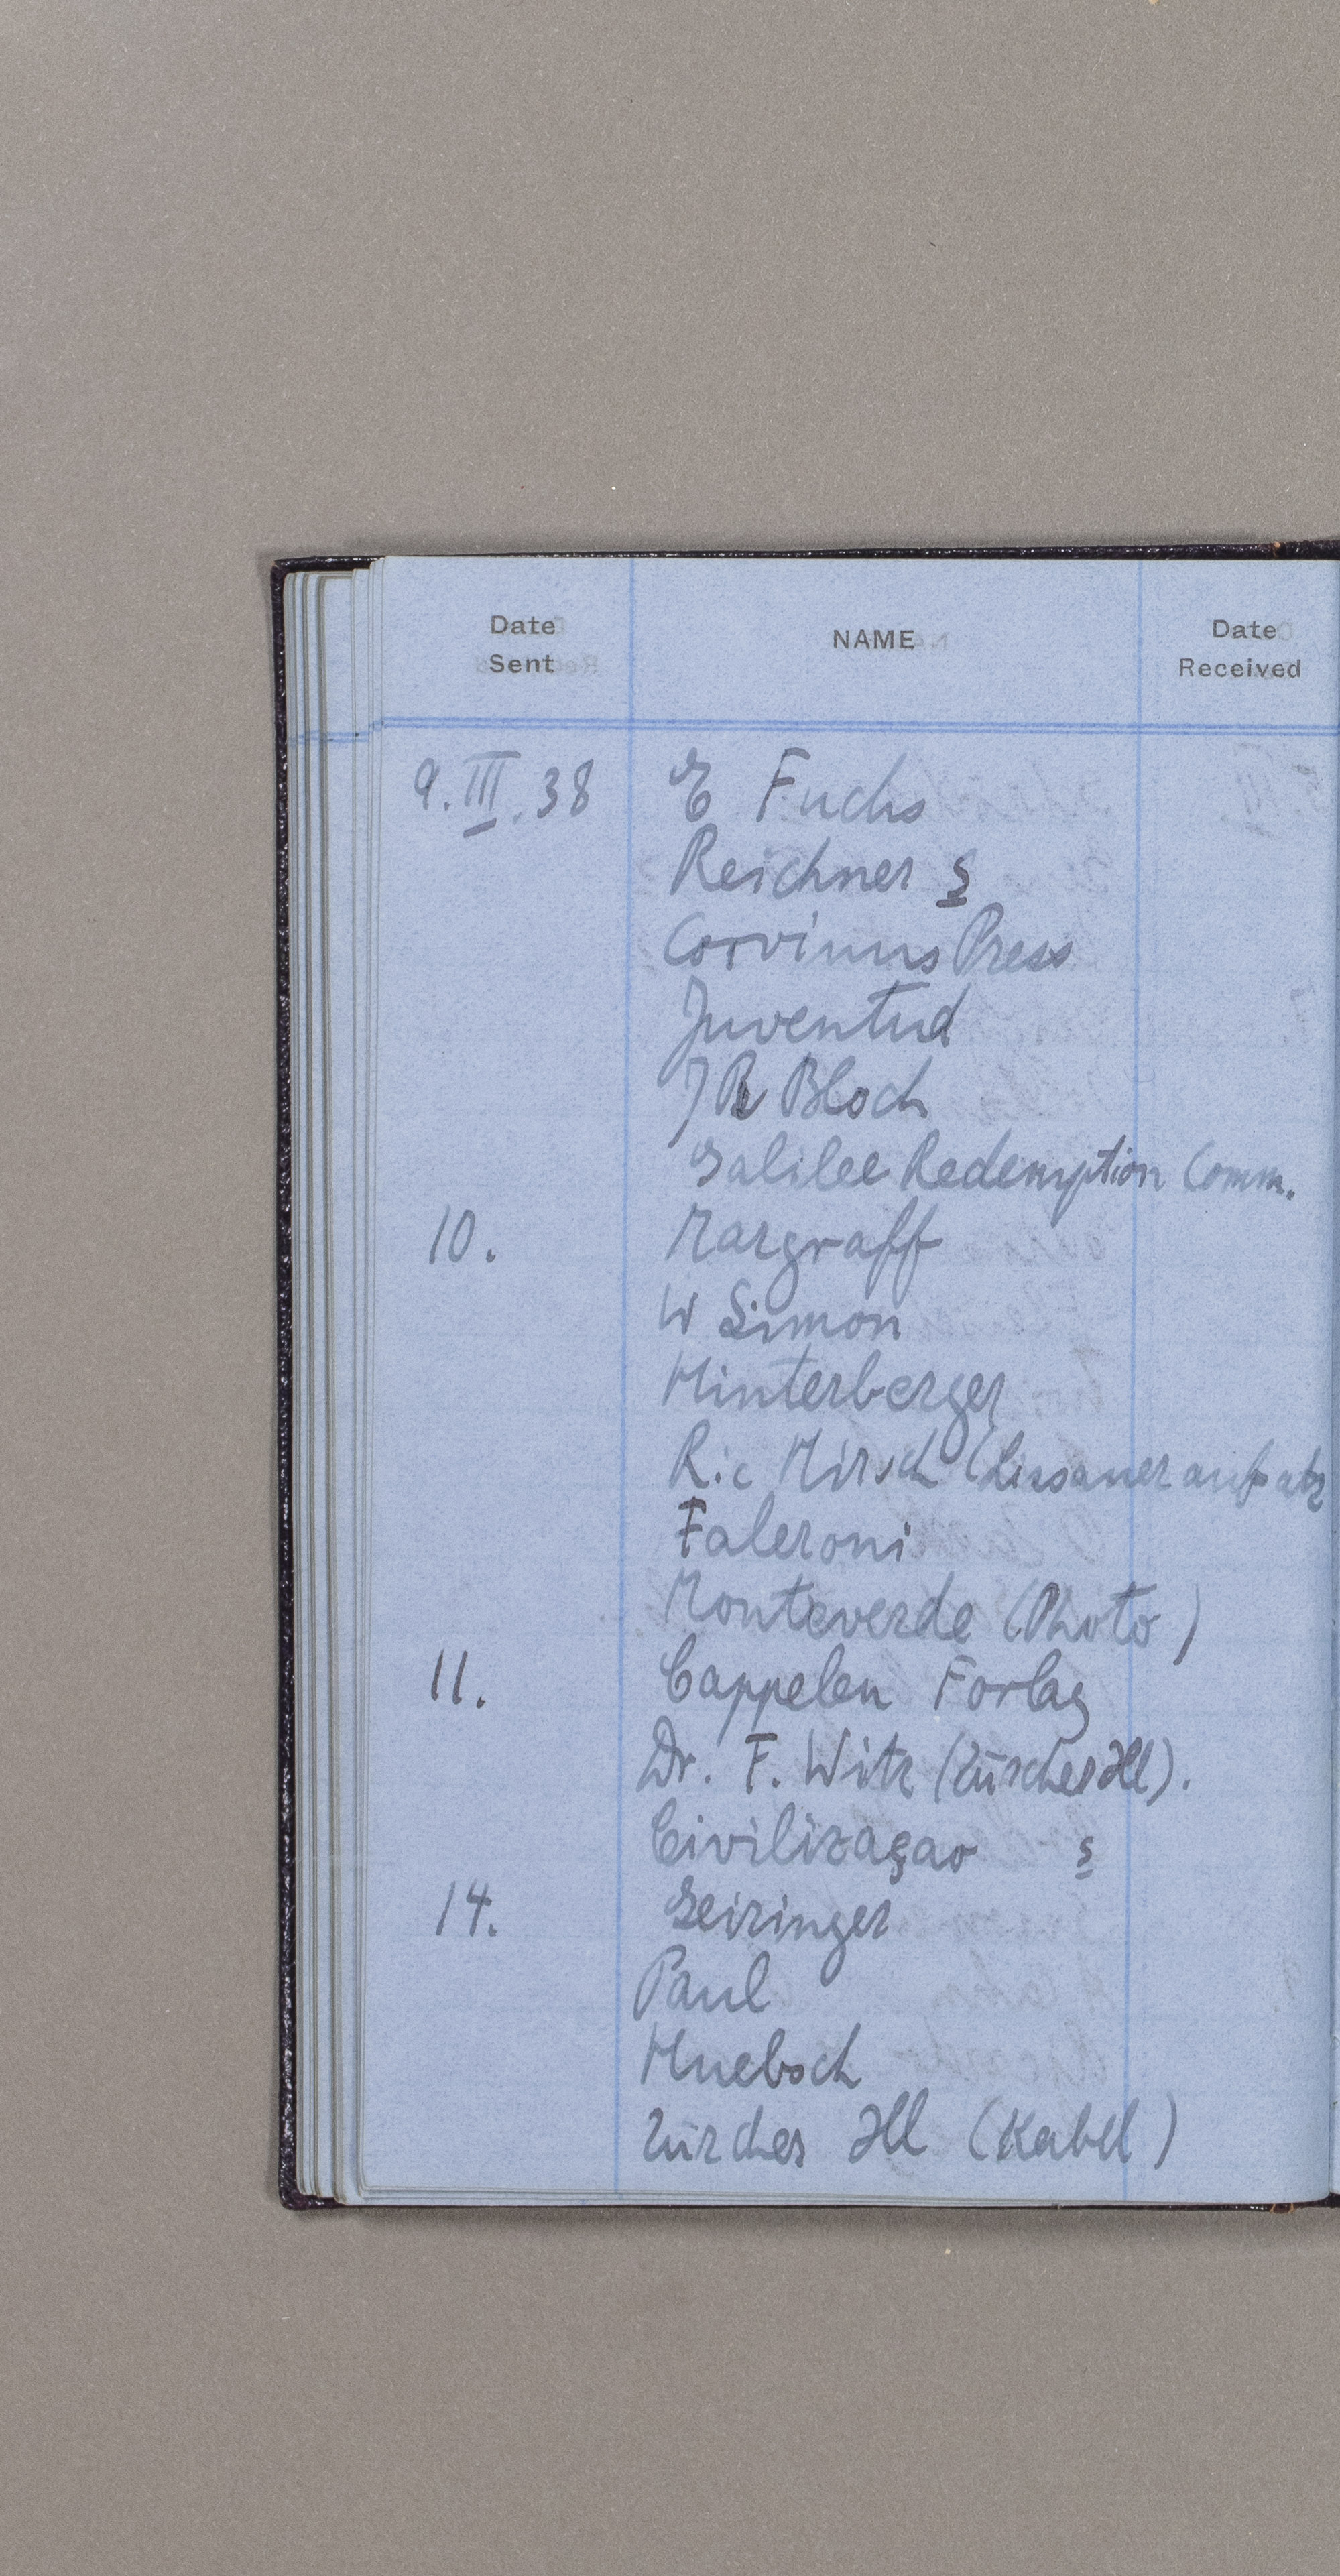 Date Sent NAME Date Received
9. III. 38 E Fuchs
Reichner s
Corvinus Press
Juventud
J R Bloch
Galilee Redemption Comm.
10. Margraff
W Simon
Hinterberger
Ric Hirsch (Lissauer aufsatz
Faleroni
Monteverde (Photo)
11. Cappelen Forlag
Dr. F. Witz (Zürcher Ill).
Civilizaçao s
14. Geiringer
Paul
Huebsch
Zürcher Ill (Kabel)